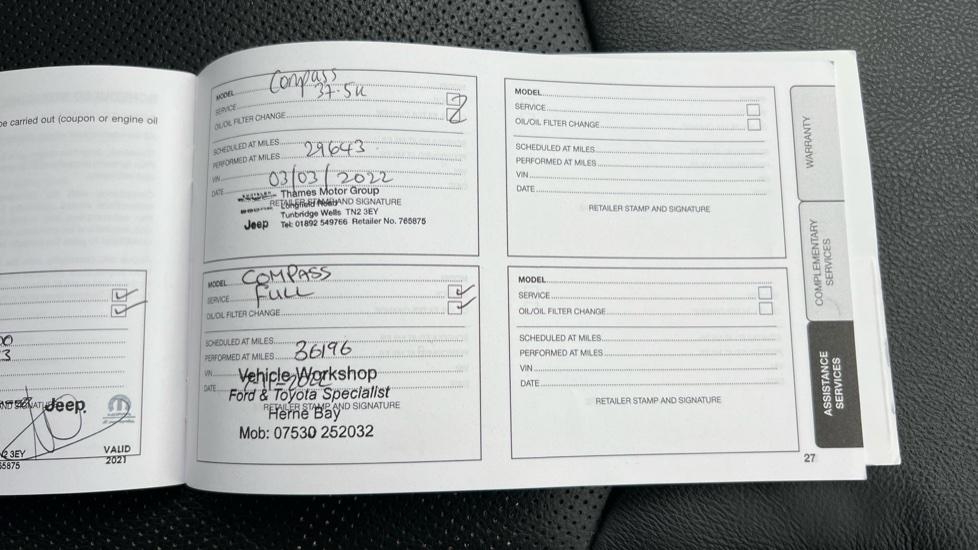 be carried out (coupon or engine oil
Jeep
N2 3EY
65875
VALID
2021
MODEL Compass
SERVICE 37.5K
OIL/OIL FILTER CHANGE
SCHEDULED AT MILES
PERFORMED AT MILES 29643
VIN
DATE 03/03/2022
Thames Motor Group
RETAILER STAMP AND SIGNATURE
Longfield Road
Tunbridge Wells TN2 3EY
Jeep Tel: 01892 549766 Retailer No. 765875
MODEL COMPASS
SERVICE FULL
OIL/OIL FILTER CHANGE
SCHEDULED AT MILES
PERFORMED AT MILES 36196
VIN
Vehicle Workshop
DATE
Ford & Toyota Specialist
RETAILER STAMP AND SIGNATURE
Herne Bay
Mob: 07530 252032
MODEL
SERVICE
OIL/OIL FILTER CHANGE
SCHEDULED AT MILES
PERFORMED AT MILES
VIN
DATE
RETAILER STAMP AND SIGNATURE
MODEL
SERVICE
OIL/OIL FILTER CHANGE
SCHEDULED AT MILES
PERFORMED AT MILES
VIN
DATE
RETAILER STAMP AND SIGNATURE
WARRANTY
COMPLEMENTARY
SERVICES
ASSISTANCE
SERVICES
27